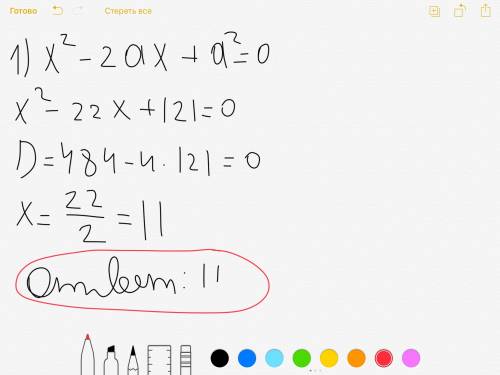 Готово Стереть все
1) x² - 2ax + a² = 0
x² - 22x + 121 = 0
D = 484 - 4 · 121 = 0
x = 22/2 = 11
Ответ: 11